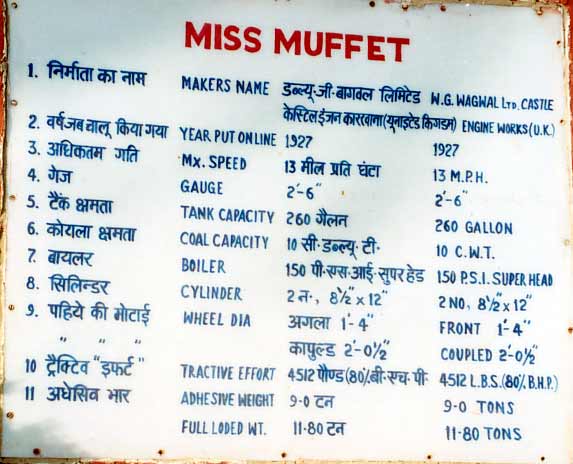 MISS MUFFET
1. निर्माता का नाम MAKERS NAME डब्ल्यू.जी.बागवल लिमिटेड W.G. WAGWAL LTD. CASTLE
केस्टिल इंजन कारखाना (यूनाइटेड किंगडम) ENGINE WORKS (U.K.)
2. वर्ष जब चालू किया गया YEAR PUT ON LINE 1927 1927
3. अधिकतम गति MX. SPEED 13 मील प्रति घंटा 13 M.P.H.
4. गेज GAUGE 2'-6" 2'-6"
5. टैंक क्षमता TANK CAPACITY 260 गैलन 260 GALLON
6. कोयला क्षमता COAL CAPACITY 10 सी. डब्ल्यू. टी. 10 C.W.T.
7. बायलर BOILER 150 पी.एस.आई. सुपर हेड 150 P.S.I. SUPER HEAD
8. सिलिन्डर CYLINDER 2 न., 8½" x 12" 2 NO, 8½" x 12"
9. पहिये की मोटाई WHEEL DIA अगला 1'-4" FRONT 1'-4"
" " " कापुल्ड 2'-0½" COUPLED 2'-0½"
10 ट्रैक्टिव "इफर्ट" TRACTIVE EFFORT 4512 पौण्ड (80% बी.एच.पी. 4512 L.B.S. (80% B.H.P.)
11 अधेसिव भार ADHESIVE WEIGHT 9-0 टन 9-0 TONS
FULL LODED WT. 11-80 टन 11-80 TONS